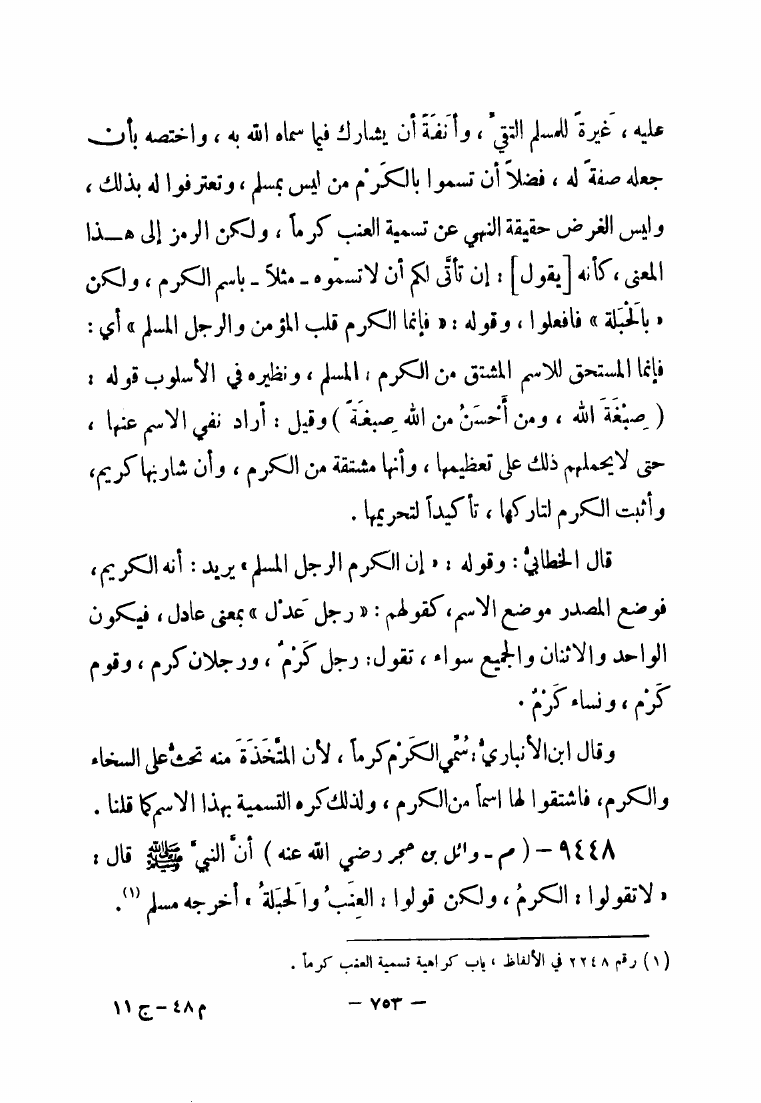 عليه ، غَيرةً للمسلم التقيِّ ، وأَنَفَةً أن يشارك فيما سماه الله به ، واختصه بأن
جعله صفةً له ، فضلاً أن تسموا بالكَرْم من ليس بمسلم ، وتعترفوا له بذلك ،
وليس الغرض حقيقة النهي عن تسمية العنب كرماً ، ولكن الرمز إلى هـذا
المعنى ، كأنه [يقول] : إن تأتَّى لكم أن لا تسمّوه ـ مثلاً ـ باسم الكرم ، ولكن
« بالَحْبَلة » فافعلوا ، وقوله : « فإنما الكرم قلب المؤمن والرجل المسلم » أي :
فإنما المستحق للاسم المشتق من الكرم : المسلم ، ونظيره في الأسلوب قوله :
( صِبْغَةَ الله ، ومن أَحْسَنُ من الله صِبغَةً ) وقيل : أراد نفي الاسم عنها ،
حتى لا يحملهم ذلك على تعظيمها ، وأنها مشتقة من الكرم ، وأن شاربها كريم،
وأثبت الكرم لتاركها ، تأكيداً لتحريمها .
قال الخطابيُّ : وقوله : « إن الكرم الرجل المسلم » يريد : أنه الكريم،
فوضع المصدر موضع الاسم، كقولهم : « رجل عَدْل » بمعنى عادل ، فيكون
الواحد والاثنان والجميع سواء ، تقول: رجل كَرْمٌ ، ورجلان كرم ، وقوم
كَرْم ، ونساء كَرْمٌ .
وقال ابن الأنباريُّ : سُمِّي الكَرْم كرماً ، لأن المتَّخَذَةَ منه تحثُّ على السخاء
والكرم، فاشتقوا لها اسماً من الكرم ، ولذلك كره التسمية بهذا الاسم كما قلنا .
٩٤٤٨ – ( م - وائل بن حجر رضي الله عنه ) أنَّ النبيَّ ﷺ قال :
« لا تقولوا : الكرمُ ، ولكن قولوا : العِنَبُ والَحبَلةُ » أخرجه مسلم (١).
(١) رقم ٢٢٤٨ في الألفاظ ، باب كراهية تسمية العنب كرماً .
– ٧٥٣ –
م ٤٨ – ج ١١